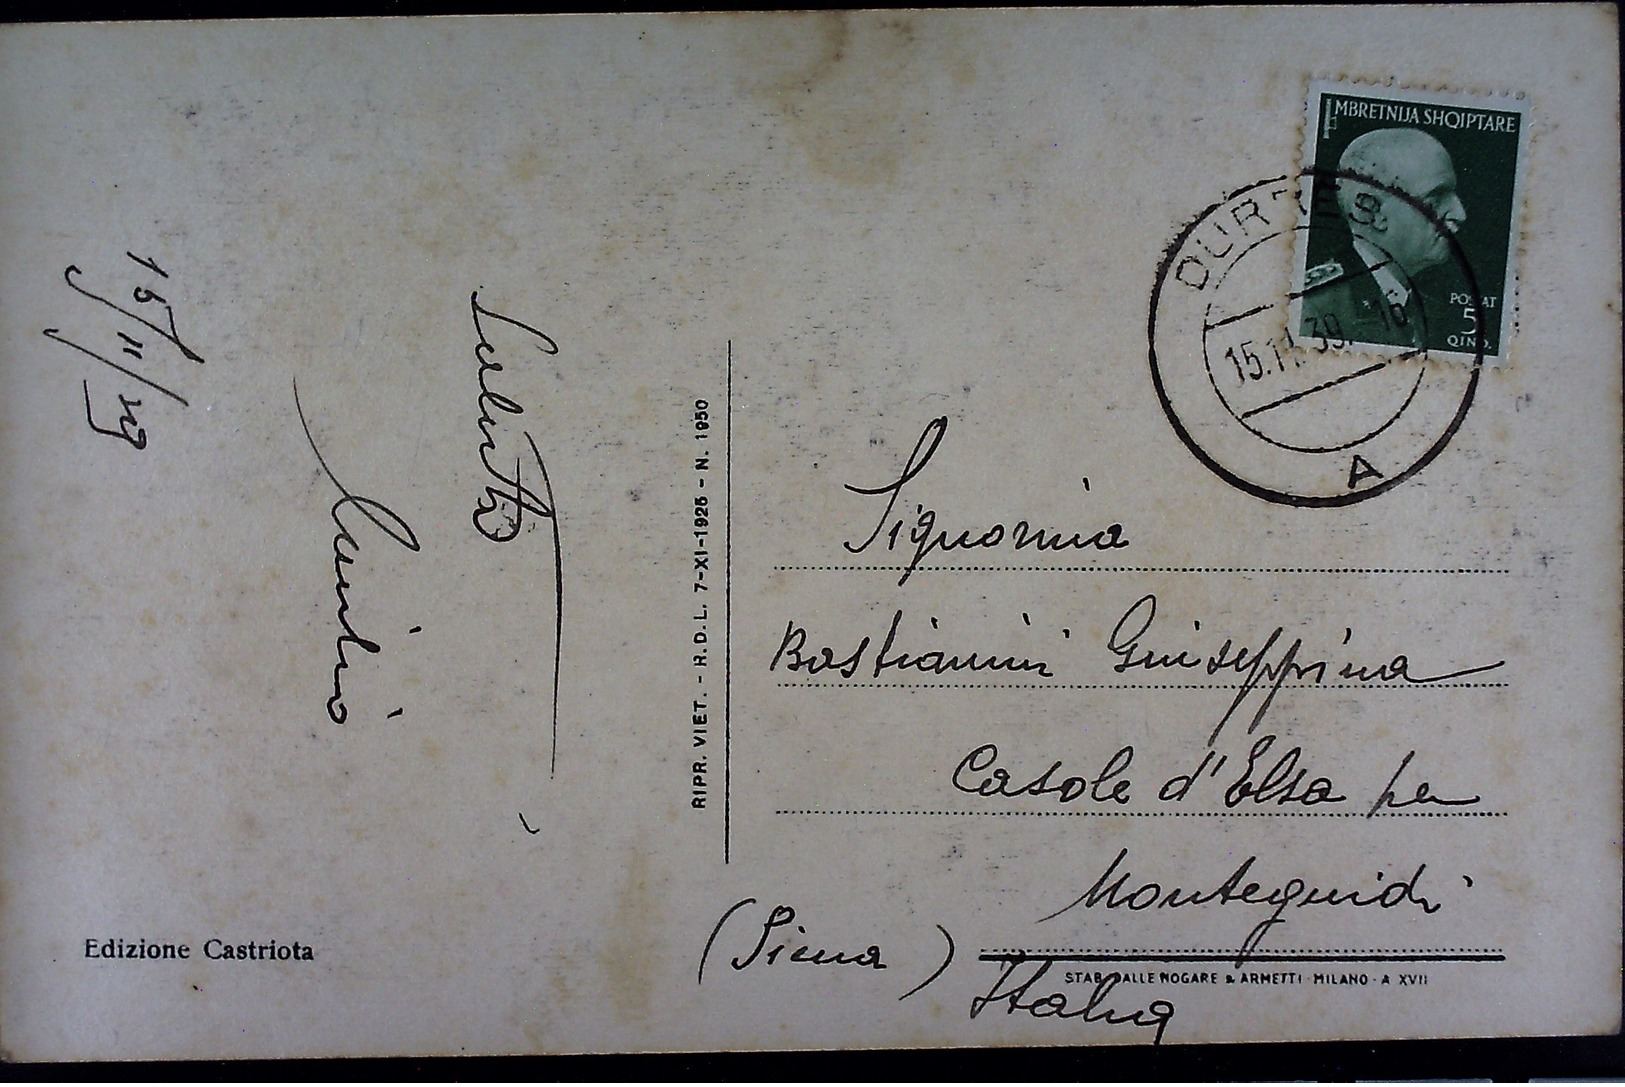 15/11/39
Saluti
Edizione Castriota
RIPR. VIET. - R. D. L. 7-XI-1925 - N. 1950
MBRETNIJA SHQIPTARE
POSTAT
5
QIND.
DURRËS
15.11.39. 16
A
Signorina
Bastianini Giuseppina
Casole d'Elsa per
Monteguidi
(Siena)
Italia
STAB. DALLE NOGARE & ARMETTI - MILANO - A XVII